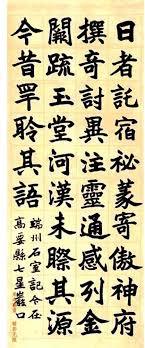 日者託宿祕篆寄傲神府
撰奇討異注靈通感列金
闕疏玉堂河漢未際其源
今昔罕聆其語
端州石室記今在
高要縣七星巖口